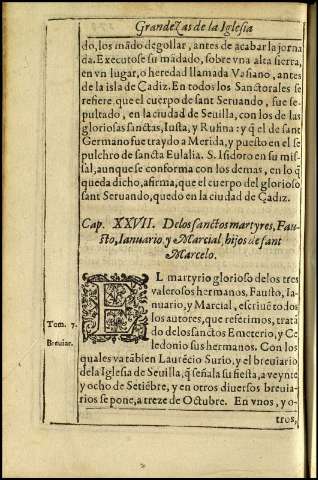 Grandezas de la Iglesia
do, los mãdo degollar, antes de acabar la jorna
da. Executose su mãdado, sobre vna alta sierra,
en vn lugar, o heredad llamada Vsiano, antes
de la isla de Cadiz. En todos los Sanctorales se
refiere, que el cuerpo de sant Seruando, fue se-
pultado, en la ciudad de Seuilla, con los de las
gloriosas sanctas, Iusta, y Rufina: y q̃ el de sant
Germano fue traydo a Merida, y puesto en el se
pulchro de sancta Eulalia. S. Isidoro en su mis-
sal, aunque se conforma con los demas, en lo q̃
queda dicho, afirma, que el cuerpo del glorioso
sant Seruando, quedo en la ciudad de Cadiz.
Cap. XXVII. De los sanctos martyres, Fau-
sto, Ianuario, y Marcial, hijos de sant
Marcelo.
EL martyrio glorioso de los tres
valerosos hermanos, Fausto, Ia-
nuario, y Marcial, escriuẽ to dos
los autores, que referimos, tratã
Tom. 7.
do de los sanctos Emeterio, y Ce
Breuiar.
ledonio sus hermanos. Con los
quales va tãbien Laurẽcio Surio, y el breuiario
de la Iglesia de Seuilla, q̃ señala su fiesta, a veynte
y ocho de Setiẽbre, y en otros diuersos breuia-
rios se pone, a treze de Octubre. En vnos, y o-
tros,